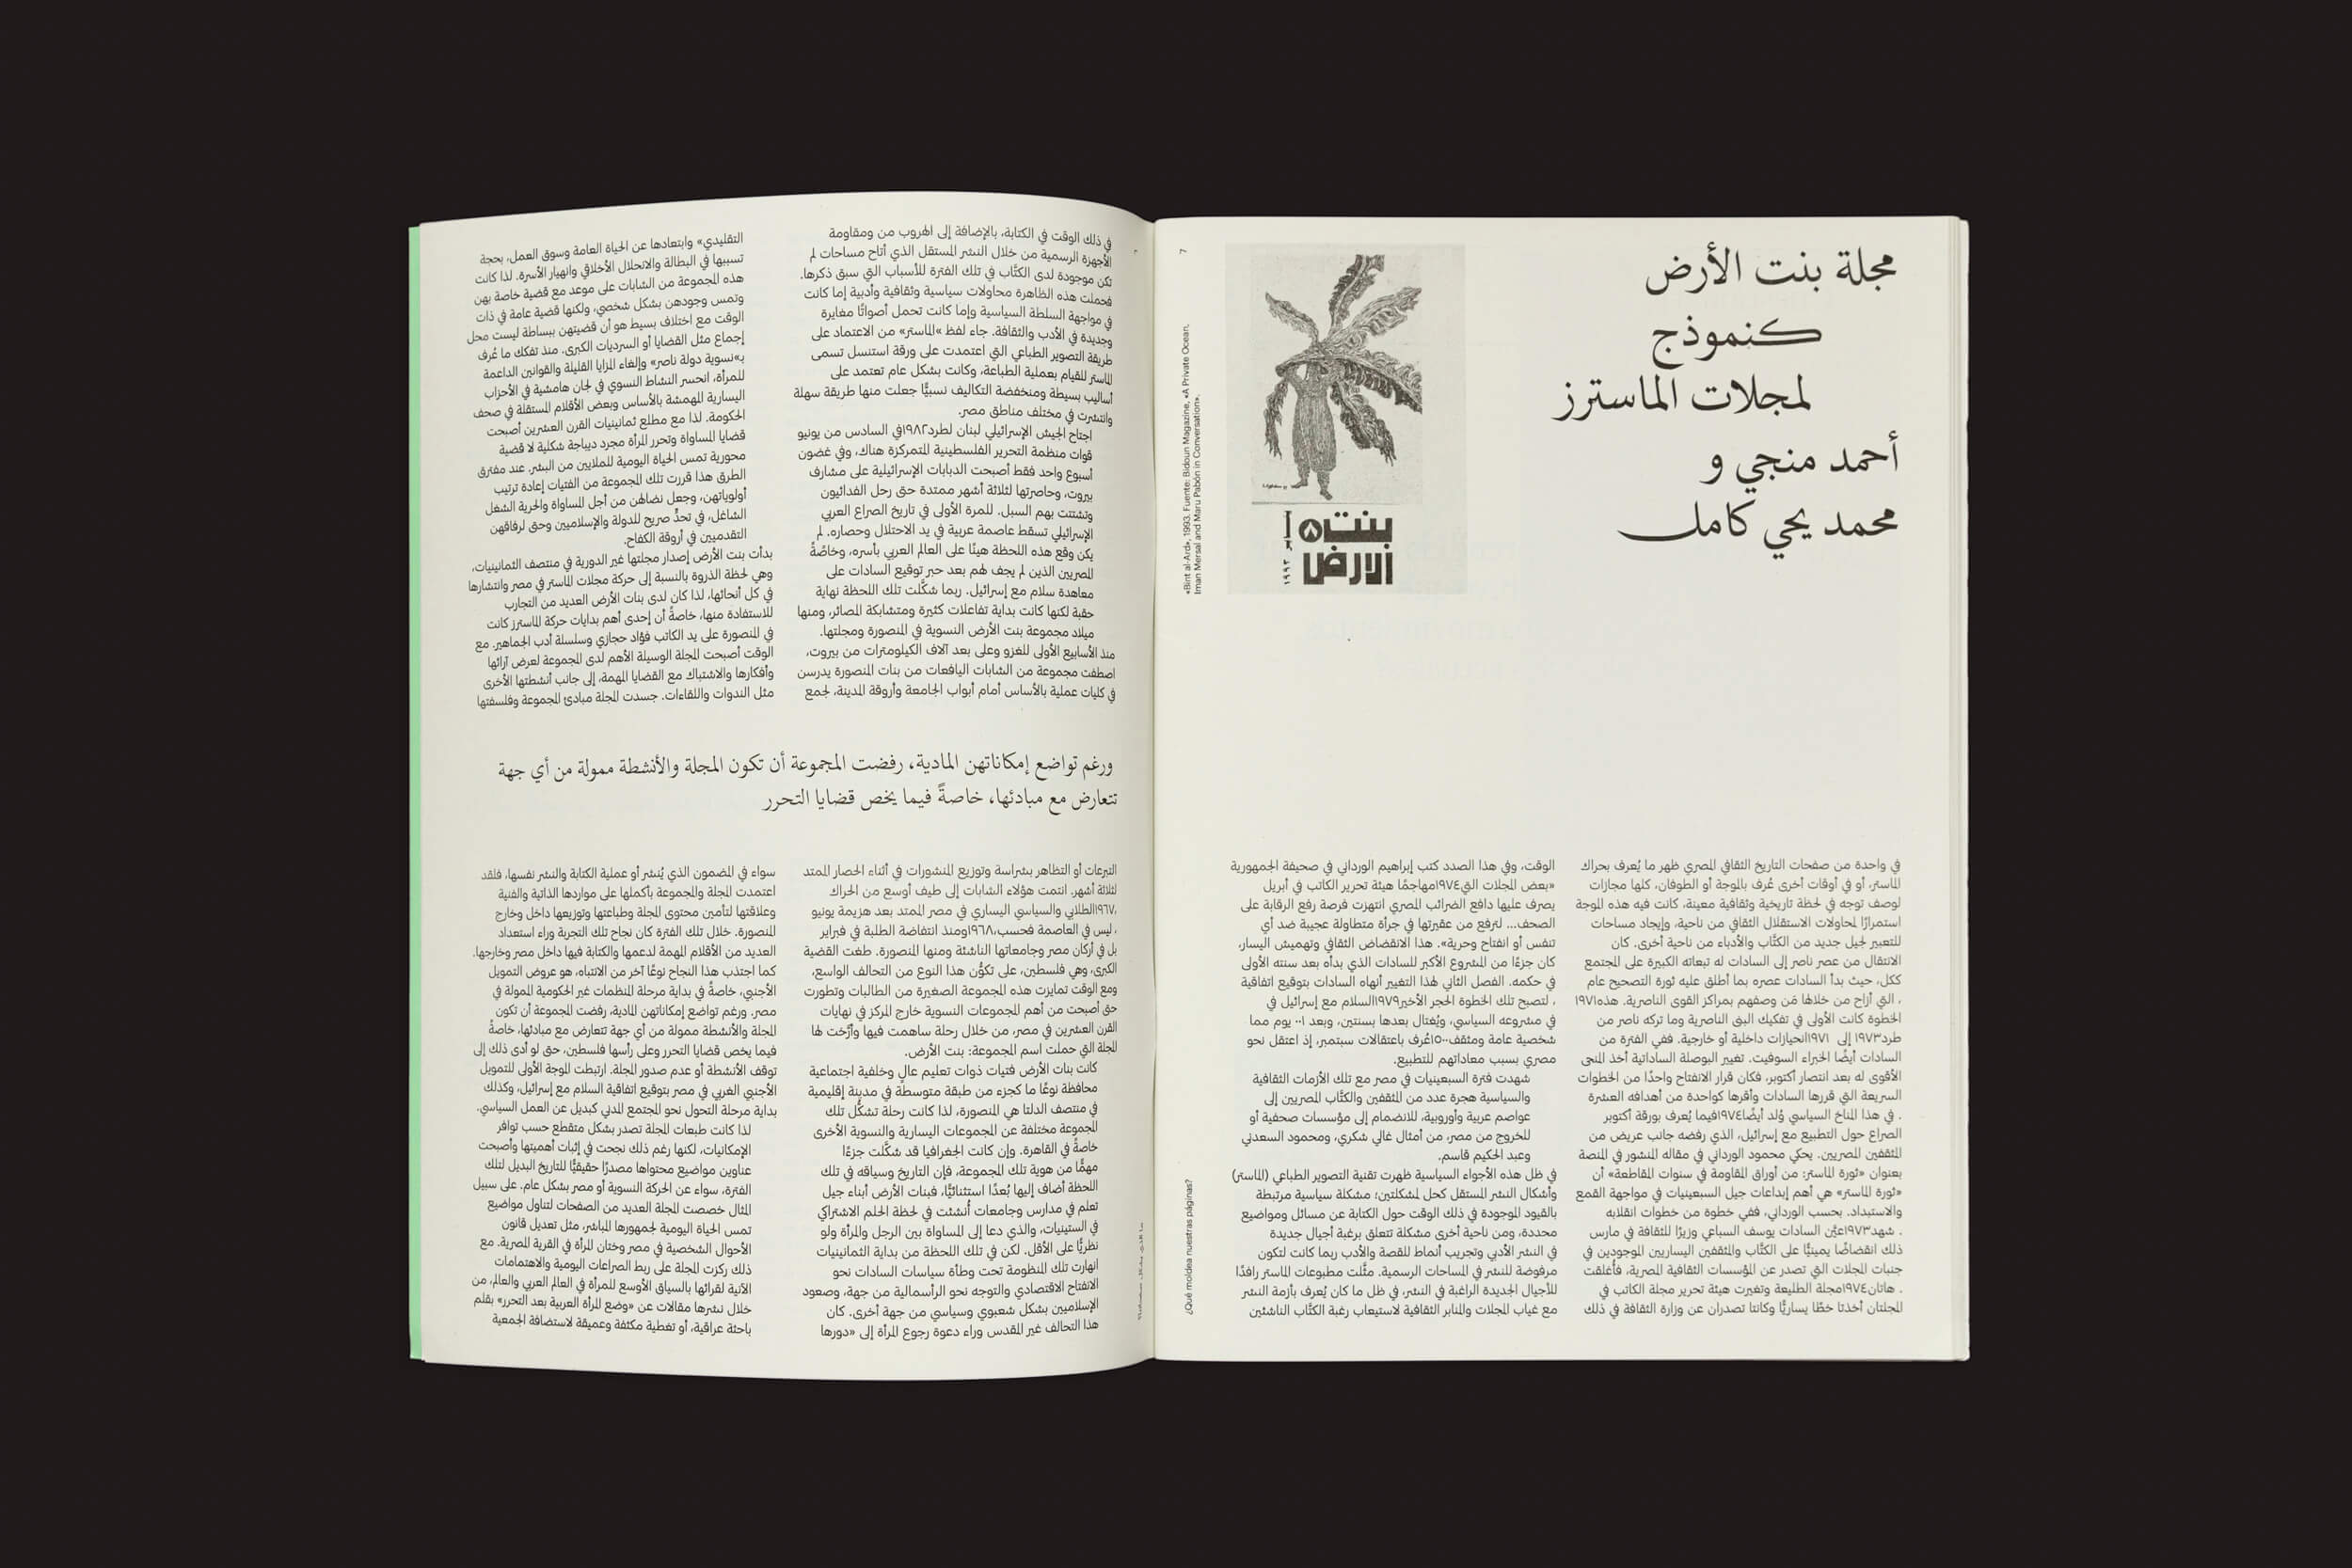 مجلة بنت الأرض
كنموذج
لمجلات الماسترز
أحمد منجي و
محمد يحي كامل
7
«Bint al-Ard», 1993. Fuente: Bidoun Magazine, «A Private Ocean,
Iman Mersal and Maru Pabón in Conversation».
بنت ٨
الارض
يناير ١٩٩٣
في واحدة من صفحات التاريخ الثقافي المصري ظهر ما يُعرف بحراك
الماستر، أو في أوقات أخرى عُرف بالموجة أو الطوفان، كلها مجازات
لوصف توجه في لحظة تاريخية وثقافية معينة، كانت فيه هذه الموجة
استمرارًا لمحاولات الاستقلال الثقافي من ناحية، وإيجاد مساحات
للتعبير لجيل جديد من الكتَّاب والأدباء من ناحية أخرى. كان
الانتقال من عصر ناصر إلى السادات له تبعاته الكبيرة على المجتمع
ككل، حيث بدأ السادات عصره بما أطلق عليه ثورة التصحيح عام
، التي أزاح من خلالها مَن وصفهم بمراكز القوى الناصرية. هذه١٩٧١
الخطوة كانت الأولى في تفكيك البنى الناصرية وما تركه ناصر من
طرد١٩٧٣ إلى ١٩٧١انحيازات داخلية أو خارجية. ففي الفترة من
السادات أيضًا الخبراء السوفيت. تغيير البوصلة الساداتية أخذ المنحى
الأقوى له بعد انتصار أكتوبر، فكان قرار الانفتاح واحدًا من الخطوات
السريعة التي قررها السادات وأقرها كواحدة من أهدافه العشرة
. في هذا المناخ السياسي وُلد أيضًا١٩٧٤فيما يُعرف بورقة أكتوبر
الصراع حول التطبيع مع إسرائيل، الذي رفضه جانب عريض من
المثقفين المصريين. يحكي محمود الورداني في مقاله المنشور في المنصة
بعنوان «ثورة الماستر: من أوراق المقاومة في سنوات المقاطعة» أن
«ثورة الماستر» هي أهم إبداعات جيل السبعينيات في مواجهة القمع
والاستبداد. بحسب الورداني، ففي خطوة من خطوات انقلابه
. شهد١٩٧٣عيَّن السادات يوسف السباعي وزيرًا للثقافة في مارس
ذلك انقضاضًا يمينيًّا على الكتَّاب والمثقفين اليساريين الموجودين في
جنبات المجلات التي تصدر عن المؤسسات الثقافية المصرية، فأُغلقت
. هاتان١٩٧٤مجلة الطليعة وتغيرت هيئة تحرير مجلة الكاتب في
المجلتان أخذتا خطًا يساريًّا وكانتا تصدران عن وزارة الثقافة في ذلك
الوقت، وفي هذا الصدد كتب إبراهيم الورداني في صحيفة الجمهورية
«بعض المجلات التي١٩٧٤مهاجمًا هيئة تحرير الكاتب في أبريل
يصرف عليها دافع الضرائب المصري انتهزت فرصة رفع الرقابة على
الصحف... لترفع من عقيرتها في جرأة متطاولة عجيبة ضد أي
تنفس أو انفتاح وحرية». هذا الانقضاض الثقافي وتهميش اليسار،
كان جزءًا من المشروع الأكبر للسادات الذي بدأه بعد سنته الأولى
في حكمه. الفصل الثاني لهذا التغيير أنهاه السادات بتوقيع اتفاقية
، لتصبح تلك الخطوة الحجر الأخير١٩٧٩السلام مع إسرائيل في
في مشروعه السياسي، ويُغتال بعدها بسنتين، وبعد ١٠٠ يوم مما
شخصية عامة ومثقف١٥٠٠عُرف باعتقالات سبتمبر، إذ اعتقل نحو
مصري بسبب معاداتهم للتطبيع.
شهدت فترة السبعينيات في مصر مع تلك الأزمات الثقافية
والسياسية هجرة عدد من المثقفين والكتَّاب المصريين إلى
عواصم عربية وأوروبية، للانضمام إلى مؤسسات صحفية أو
للخروج من مصر، من أمثال غالي شكري، ومحمود السعدني
وعبد الحكيم قاسم.
في ظل هذه الأجواء السياسية ظهرت تقنية التصوير الطباعي (الماستر)
وأشكال النشر المستقل كحل لمشكلتين؛ مشكلة سياسية مرتبطة
بالقيود الموجودة في ذلك الوقت حول الكتابة عن مسائل ومواضيع
محددة، ومن ناحية أخرى مشكلة تتعلق برغبة أجيال جديدة
في النشر الأدبي وتجريب أنماط للقصة والأدب ربما كانت لتكون
مرفوضة للنشر في المساحات الرسمية. مثَّلت مطبوعات الماستر رافدًا
للأجيال الجديدة الراغبة في النشر، في ظل ما كان يُعرف بأزمة النشر
مع غياب المجلات والمنابر الثقافية لاستيعاب رغبة الكتَّاب الناشئين
¿Qué moldea nuestras páginas?
في ذلك الوقت في الكتابة، بالإضافة إلى الهروب من ومقاومة
الأجهزة الرسمية من خلال النشر المستقل الذي أتاح مساحات لم
تكن موجودة لدى الكتَّاب في تلك الفترة للأسباب التي سبق ذكرها.
فحملت هذه الظاهرة محاولات سياسية وثقافية وأدبية إما كانت
في مواجهة السلطة السياسية وإما كانت تحمل أصواتًا مغايرة
وجديدة في الأدب والثقافة. جاء لفظ «الماستر» من الاعتماد على
طريقة التصوير الطباعي التي اعتمدت على ورقة استنسل تسمى
الماستر للقيام بعملية الطباعة، وكانت بشكل عام تعتمد على
أساليب بسيطة ومنخفضة التكاليف نسبيًّا جعلت منها طريقة سهلة
وانتشرت في مختلف مناطق مصر.
اجتاح الجيش الإسرائيلي لبنان لطرد١٩٨٢في السادس من يونيو
قوات منظمة التحرير الفلسطينية المتمركزة هناك، وفي غضون
أسبوع واحد فقط أصبحت الدبابات الإسرائيلية على مشارف
بيروت، وحاصرتها لثلاثة أشهر ممتدة حتى رحل الفدائيون
وتشتتت بهم السبل. للمرة الأولى في تاريخ الصراع العربي
الإسرائيلي تسقط عاصمة عربية في يد الاحتلال وحصاره. لم
يكن وقع هذه اللحظة هينًا على العالم العربي بأسره، وخاصَّةً
المصريين الذين لم يجف لهم بعد حبر توقيع السادات على
معاهدة سلام مع إسرائيل. ربما شكَّلت تلك اللحظة نهاية
حقبة لكنها كانت بداية تفاعلات كثيرة ومتشابكة المصائر، ومنها
ميلاد مجموعة بنت الأرض النسوية في المنصورة ومجلتها.
منذ الأسابيع الأولى للغزو وعلى بعد آلاف الكيلومترات من بيروت،
اصطفت مجموعة من الشابات اليافعات من بنات المنصورة يدرسن
في كليات عملية بالأساس أمام أبواب الجامعة وأروقة المدينة، لجمع
التقليدي» وابتعادها عن الحياة العامة وسوق العمل، بحجة
تسببها في البطالة والانحلال الأخلاقي وانهيار الأسرة. لذا كانت
هذه المجموعة من الشابات على موعد مع قضية خاصة بهن
وتمس وجودهن بشكل شخصي، ولكنها قضية عامة في ذات
الوقت مع اختلاف بسيط هو أن قضيتهن ببساطة ليست محل
إجماع مثل القضايا أو السرديات الكبرى. منذ تفكك ما عُرف
بـ«نسوية دولة ناصر» وإلغاء المزايا القليلة والقوانين الداعمة
للمرأة، انحسر النشاط النسوي في لجان هامشية في الأحزاب
اليسارية المهمشة بالأساس وبعض الأقلام المستقلة في صحف
الحكومة. لذا مع مطلع ثمانينيات القرن العشرين أصبحت
قضايا المساواة وتحرر المرأة مجرد ديباجة شكلية لا قضية
محورية تمس الحياة اليومية للملايين من البشر. عند مفترق
الطرق هذا قررت تلك المجموعة من الفتيات إعادة ترتيب
أولوياتهن، وجعل نضالهن من أجل المساواة والحرية الشغل
الشاغل، في تحدٍّ صريح للدولة والإسلاميين وحتى لرفاقهن
التقدميين في أروقة الكفاح.
بدأت بنت الأرض إصدار مجلتها غير الدورية في منتصف الثمانينيات،
وهي لحظة الذروة بالنسبة إلى حركة مجلات الماستر في مصر وانتشارها
في كل أنحائها، لذا كان لدى بنات الأرض العديد من التجارب
للاستفادة منها، خاصةً أن إحدى أهم بدايات حركة الماسترز كانت
في المنصورة على يد الكاتب فؤاد حجازي وسلسلة أدب الجماهير. مع
الوقت أصبحت المجلة الوسيلة الأهم لدى المجموعة لعرض آرائها
وأفكارها والاشتباك مع القضايا المهمة، إلى جانب أنشطتها الأخرى
مثل الندوات واللقاءات. جسدت المجلة مبادئ المجموعة وفلسفتها
ورغم تواضع إمكاناتهن المادية، رفضت المجموعة أن تكون المجلة والأنشطة ممولة من أي جهة
تتعارض مع مبادئها، خاصةً فيما يخص قضايا التحرر
التبرعات أو التظاهر بشراسة وتوزيع المنشورات في أثناء الحصار الممتد
لثلاثة أشهر. انتمت هؤلاء الشابات إلى طيف أوسع من الحراك
،١٩٦٧الطلابي والسياسي اليساري في مصر الممتد بعد هزيمة يونيو
، ليس في العاصمة فحسب،١٩٦٨ومنذ انتفاضة الطلبة في فبراير
بل في أركان مصر وجامعاتها الناشئة ومنها المنصورة. طغت القضية
الكبرى، وهي فلسطين، على تكوُّن هذا النوع من التحالف الواسع،
ومع الوقت تمايزت هذه المجموعة الصغيرة من الطالبات وتطورت
حتى أصبحت من أهم المجموعات النسوية خارج المركز في نهايات
القرن العشرين في مصر، من خلال رحلة ساهمت فيها وأرَّخت لها
المجلة التي حملت اسم المجموعة: بنت الأرض.
كانت بنات الأرض فتيات ذوات تعليم عالٍ وخلفية اجتماعية
محافظة نوعًا ما كجزء من طبقة متوسطة في مدينة إقليمية
في منتصف الدلتا هي المنصورة، لذا كانت رحلة تشكُّل تلك
المجموعة مختلفة عن المجموعات اليسارية والنسوية الأخرى
خاصةً في القاهرة. وإن كانت الجغرافيا قد شكَّلت جزءًا
مهمًّا من هوية تلك المجموعة، فإن التاريخ وسياقه في تلك
اللحظة أضاف إليها بُعدًا استثنائيًّا، فبنات الأرض أبناء جيل
تعلم في مدارس وجامعات أُنشئت في لحظة الحلم الاشتراكي
في الستينيات، والذي دعا إلى المساواة بين الرجل والمرأة ولو
نظريًّا على الأقل. لكن في تلك اللحظة من بداية الثمانينيات
انهارت تلك المنظومة تحت وطأة سياسات السادات نحو
الانفتاح الاقتصادي والتوجه نحو الرأسمالية من جهة، وصعود
الإسلاميين بشكل شعبوي وسياسي من جهة أخرى. كان
هذا التحالف غير المقدس وراء دعوة رجوع المرأة إلى «دورها
سواء في المضمون الذي يُنشر أو عملية الكتابة والنشر نفسها، فلقد
اعتمدت المجلة والمجموعة بأكملها على مواردها الذاتية والفنية
وعلاقتها لتأمين محتوى المجلة وطباعتها وتوزيعها داخل وخارج
المنصورة. خلال تلك الفترة كان نجاح تلك التجربة وراء استعداد
العديد من الأقلام المهمة لدعمها والكتابة فيها داخل مصر وخارجها.
كما اجتذب هذا النجاح نوعًا آخر من الانتباه، هو عروض التمويل
الأجنبي، خاصةً في بداية مرحلة المنظمات غير الحكومية الممولة في
مصر. ورغم تواضع إمكاناتهن المادية، رفضت المجموعة أن تكون
المجلة والأنشطة ممولة من أي جهة تتعارض مع مبادئها، خاصةً
فيما يخص قضايا التحرر وعلى رأسها فلسطين، حتى لو أدى ذلك إلى
توقف الأنشطة أو عدم صدور المجلة. ارتبطت الموجة الأولى للتمويل
الأجنبي الغربي في مصر بتوقيع اتفاقية السلام مع إسرائيل، وكذلك
بداية مرحلة التحول نحو المجتمع المدني كبديل عن العمل السياسي.
لذا كانت طبعات المجلة تصدر بشكل متقطع حسب توافر
الإمكانيات، لكنها رغم ذلك نجحت في إثبات أهميتها وأصبحت
عناوين مواضيع محتواها مصدرًا حقيقيًّا للتاريخ البديل لتلك
الفترة، سواء عن الحركة النسوية أو مصر بشكل عام. على سبيل
المثال خصصت المجلة العديد من الصفحات لتناول مواضيع
تمس الحياة اليومية لجمهورها المباشر، مثل تعديل قانون
الأحوال الشخصية في مصر وختان المرأة في القرية المصرية. مع
ذلك ركزت المجلة على ربط الصراعات اليومية والاهتمامات
الآنية لقرائها بالسياق الأوسع للمرأة في العالم العربي والعالم، من
خلال نشرها مقالات عن «وضع المرأة العربية بعد التحرر» بقلم
باحثة عراقية، أو تغطية مكثفة وعميقة لاستضافة الجمعية